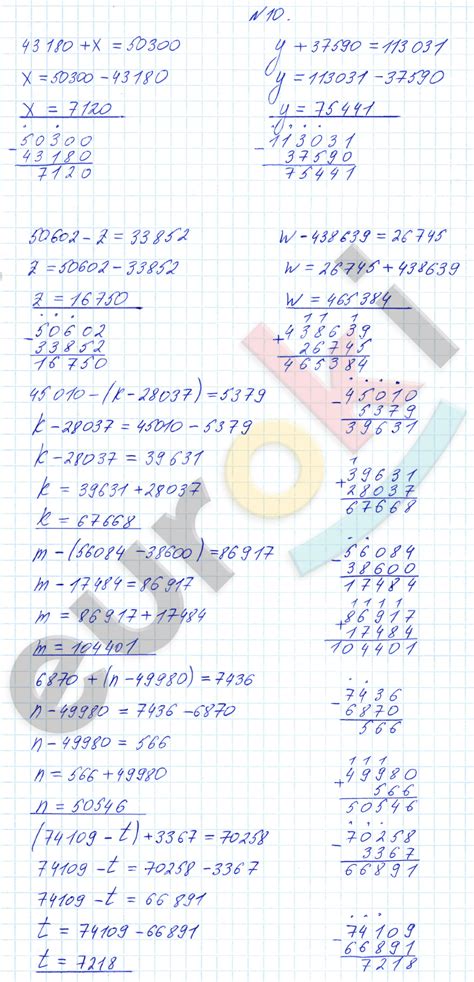 №10.
43180 + x = 50300
x = 50300 - 43180
x = 7120
- 50300
43180
7120
y + 37590 = 113031
y = 113031 - 37590
y = 75441
- 113031
37590
75441
50602 - z = 33852
z = 50602 - 33852
z = 16750
- 50602
33852
16750
w - 438639 = 26745
w = 26745 + 438639
w = 465384
11 1
+ 438639
26745
465384
45010 - (k - 28037) = 5379
k - 28037 = 45010 - 5379
k - 28037 = 39631
k = 39631 + 28037
k = 67668
- 45010
5379
39631
1
+ 39631
28037
67668
m - (56084 - 38600) = 86917
m - 17484 = 86917
m = 86917 + 17484
m = 104401
- 56084
38600
17484
1111
+ 86917
17484
104401
6870 + (n - 49980) = 7436
n - 49980 = 7436 - 6870
n - 49980 = 566
n = 566 + 49980
n = 50546
- 7436
6870
566
111
+ 49980
566
50546
(74109 - t) + 3367 = 70258
74109 - t = 70258 - 3367
74109 - t = 66891
t = 74109 - 66891
t = 7218
- 70258
3367
66891
- 74109
66891
7218
euroki